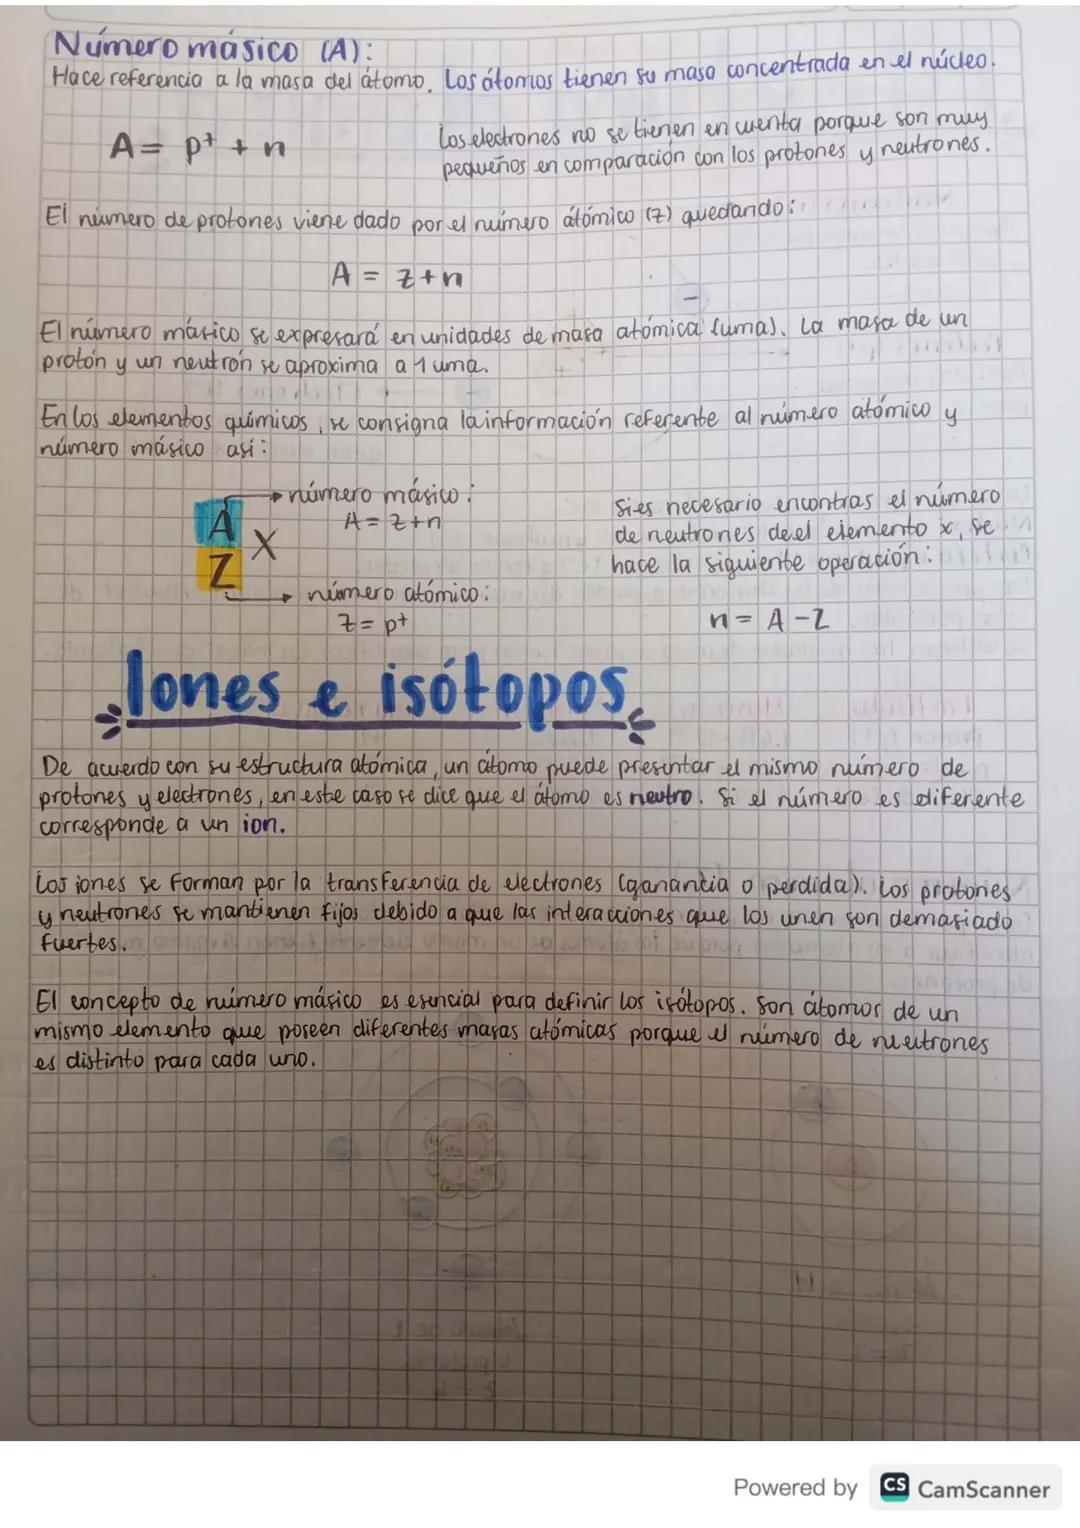 Número másico (A):
Hace referencia a la masa del átomo. Los átomos tienen su masa concentrada en el núcleo.
A = p+ + n
Los electrones no se tienen en cuenta porque son muy
pequeños en comparación con los protones y neutrones.
El número de protones viene dado por el número átómico (z) quedando:
A = z+n
El número másico se expresará en unidades de masa atómica (uma). La masa de un
protón y un neutrón se aproxima a 1 uma.
En los elementos químicos, se consigna la información referente al número atómico y
número másico así:
número másico:
A = z+n
A
X
Z
número atómico:
z = p+
Si es necesario encontras el número
de neutrones de el elemento x, se
hace la siguiente operación:
n = A - Z
Iones e isótopos
De acuerdo con su estructura atómica, un átomo puede presentar el mismo número de
protones y electrones, en este caso se dice que el átomo es neutro. Si el número es diferente
corresponde a un ion.
Los iones se forman por la transferencia de electrones (ganancia o perdida). Los protones
y neutrones se mantienen fijos debido a que las interacciones que los unen son demasiado
fuertes.
El concepto de número másico es esencial para definir los isótopos. Son átomos de un
mismo elemento que poseen diferentes masas atómicas porque el número de neutrones
es distinto para cada uno.
Powered by CS CamScanner